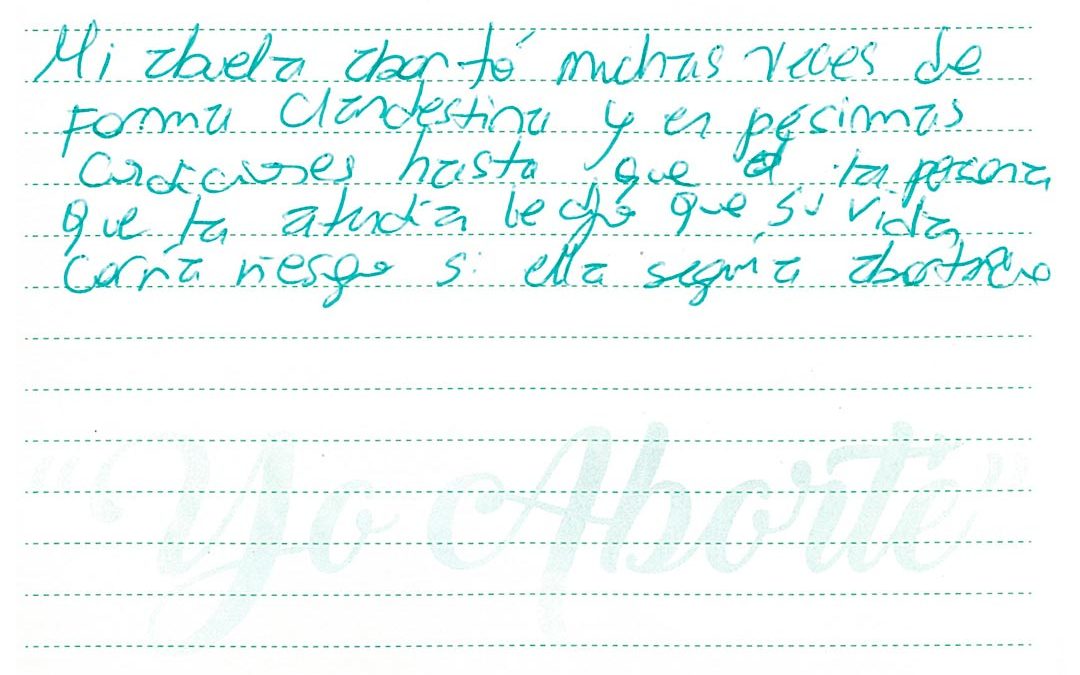 Mi abuela abortó muchas veces de
forma clandestina y en pésimas
condiciones hasta que la persona
que la atendía le dijo que su vida
corría riesgo si ella seguía abortando
“Yo Aborté”